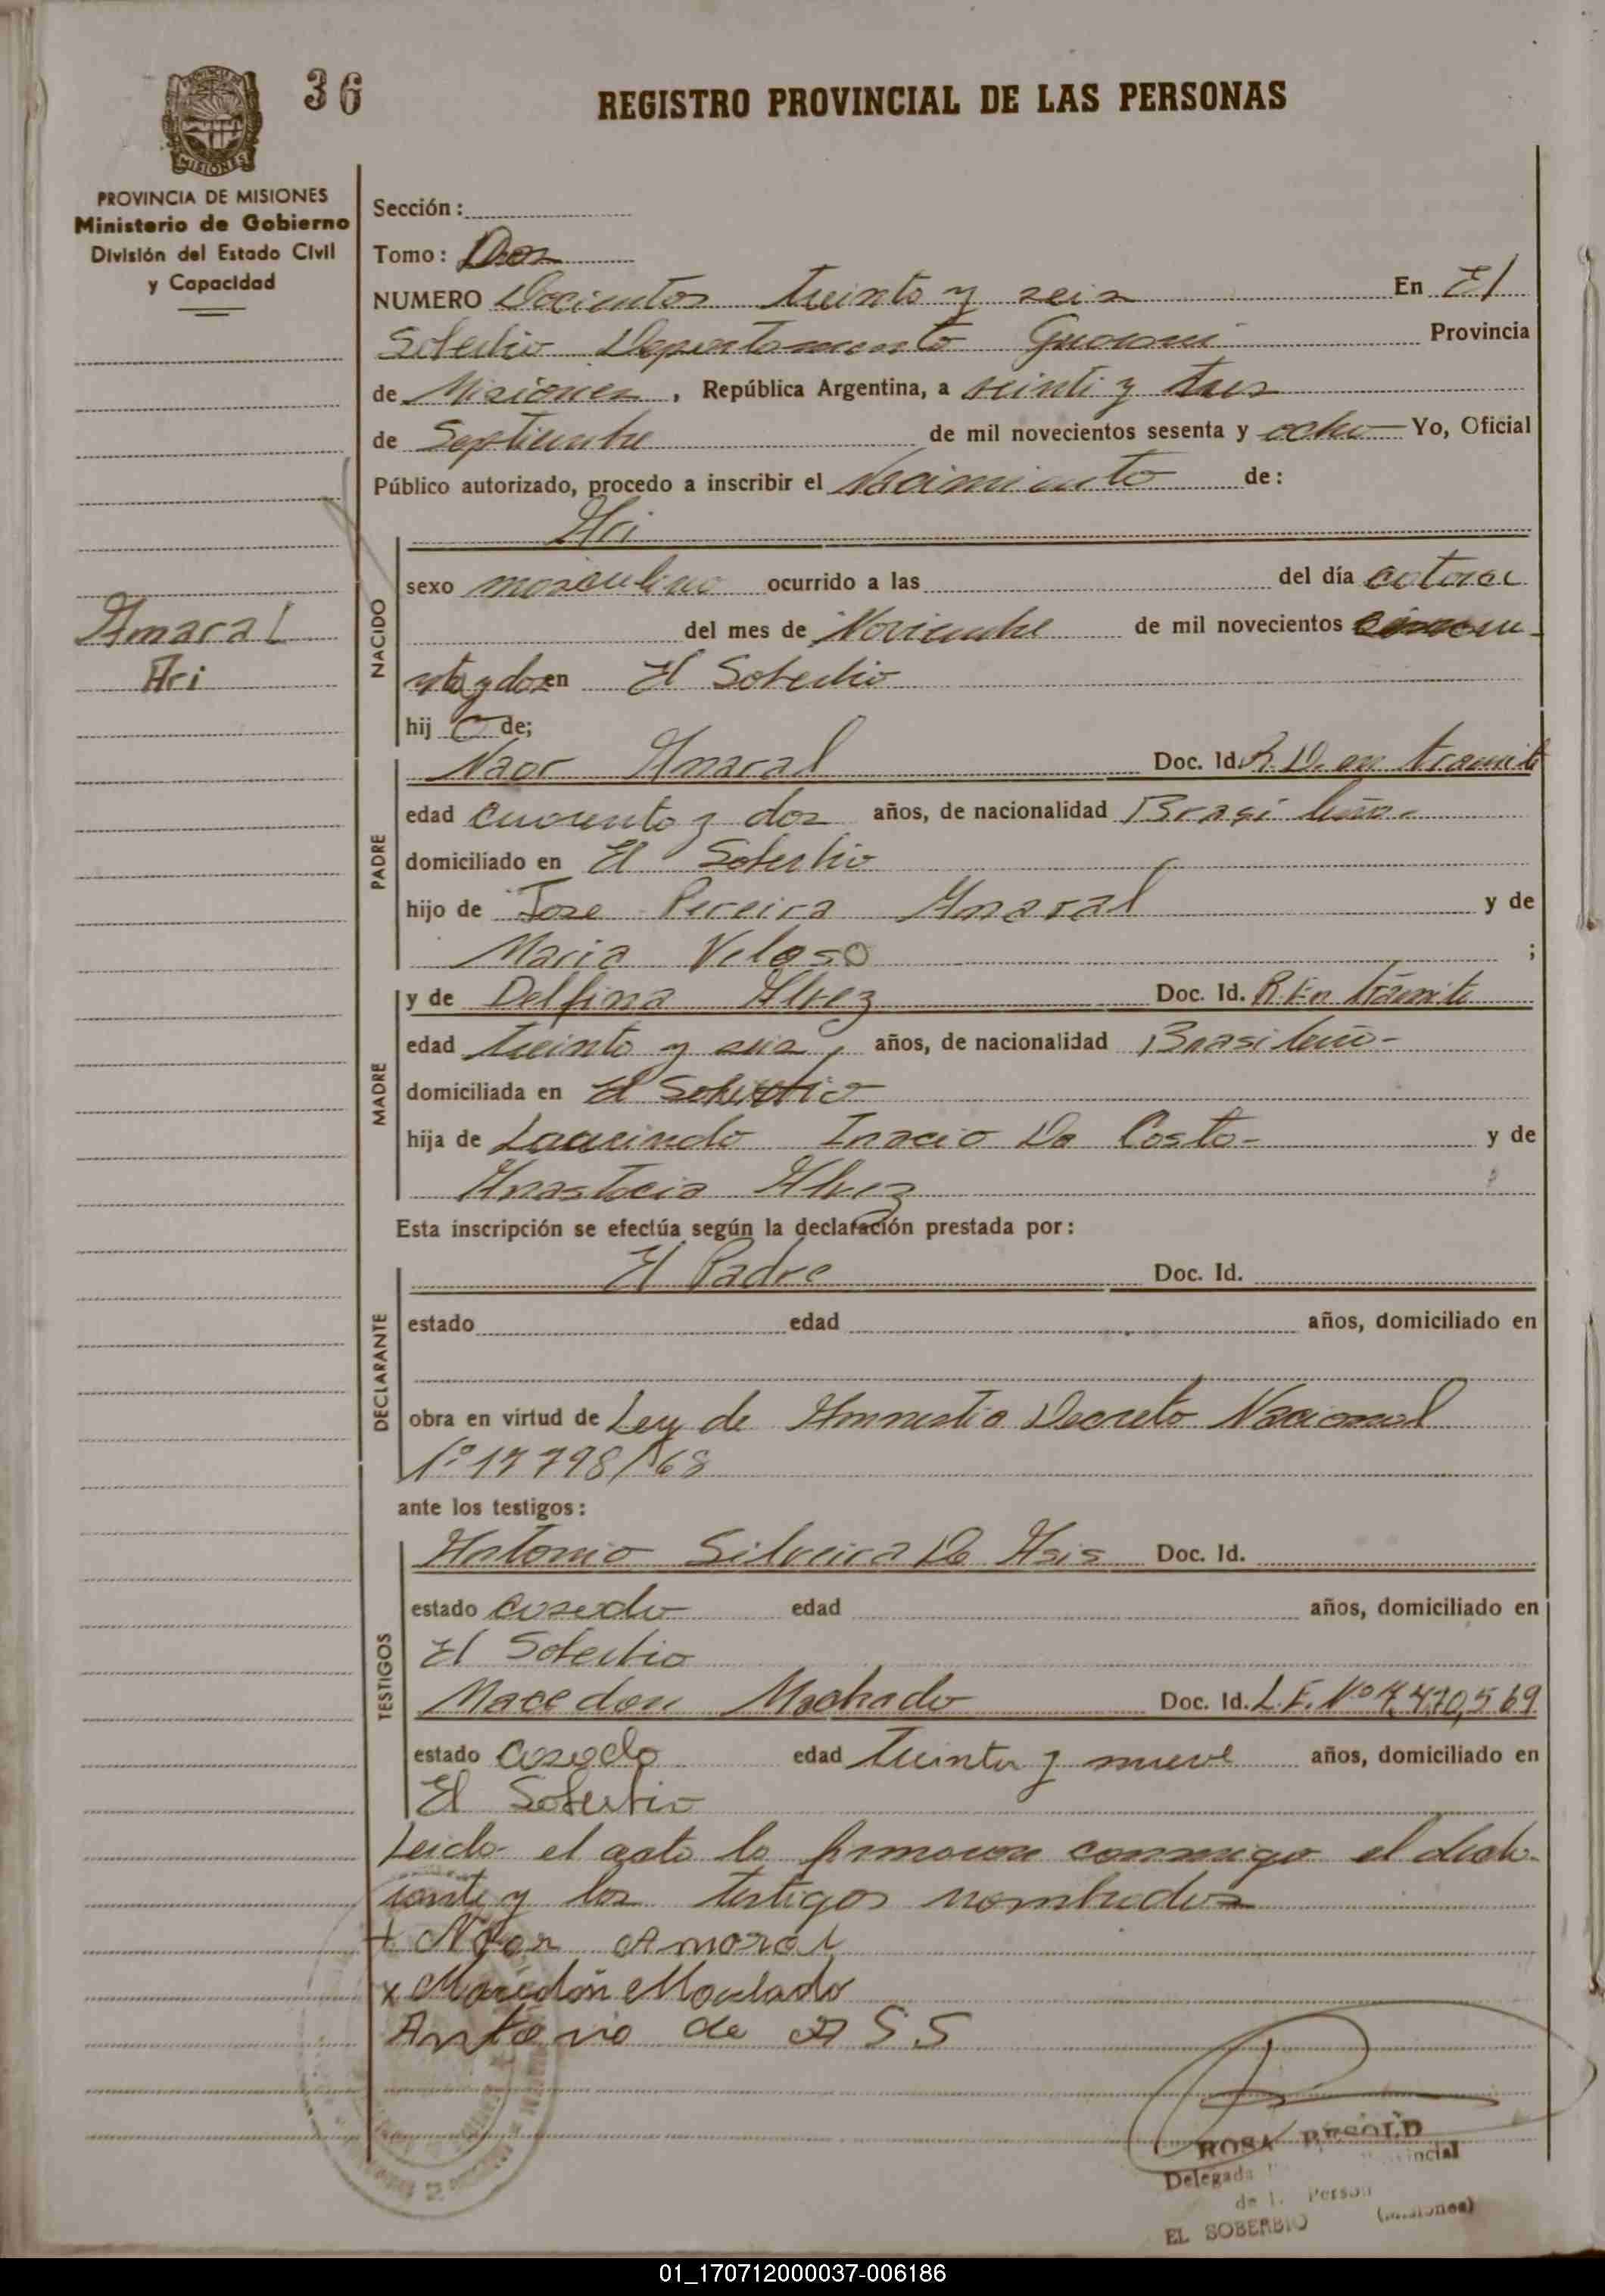 36
REGISTRO PROVINCIAL DE LAS PERSONAS
MISIONES
PROVINCIA DE MISIONES
Ministerio de Gobierno
División del Estado Civil
y Capacidad
Sección:
Tomo: Dos
NUMERO Docientos treinta y seis En El
Soberbio Departamento Guarani Provincia
de Misiones, República Argentina, a veinti y tres
de Septiembre de mil novecientos sesenta y ocho Yo, Oficial
Público autorizado, procedo a inscribir el Nacimiento de:
Ari
NACIDO
sexo masculino ocurrido a las del día catorce
del mes de Noviembre de mil novecientos cincuen-
ta y dos en El Soberbio
hij o de;
Amaral
Ari
PADRE
Naor Amaral Doc. Id. R. D. en tramite
edad cuarenta y dos años, de nacionalidad Brasileña-
domiciliado en El Soberbio
hijo de Jose Pereira Amaral y de
Maria Veloso ;
MADRE
y de Delfina Alvez Doc. Id. R. En trámite
edad treinta y seis, años, de nacionalidad Brasileña-
domiciliada en El Soberbio
hija de Laurindo Inacio Da Costa- y de
Anastacia Alvez
Esta inscripción se efectúa según la declaración prestada por:
DECLARANTE
El Padre Doc. Id.
estado edad años, domiciliado en
obra en virtud de Ley de Amnestia Decreto Nacional
Nº 17798/68
ante los testigos:
TESTIGOS
Antonio Silveira De Asis Doc. Id.
estado casado edad años, domiciliado en
El Soberbio
Macedon Machado Doc. Id. L.E. Nº 7.470,569
estado casado edad treinta y nueve años, domiciliado en
El Soberbio
Leida el acta la firmaron conmigo el decla-
rante y los testigos nombrados
+ Naor Amaral
x Macedón Machado
Antonio de A S S
ROSA BESOLD
Delegada
EL SOBERBIO (Misiones)
01_170712000037-006186